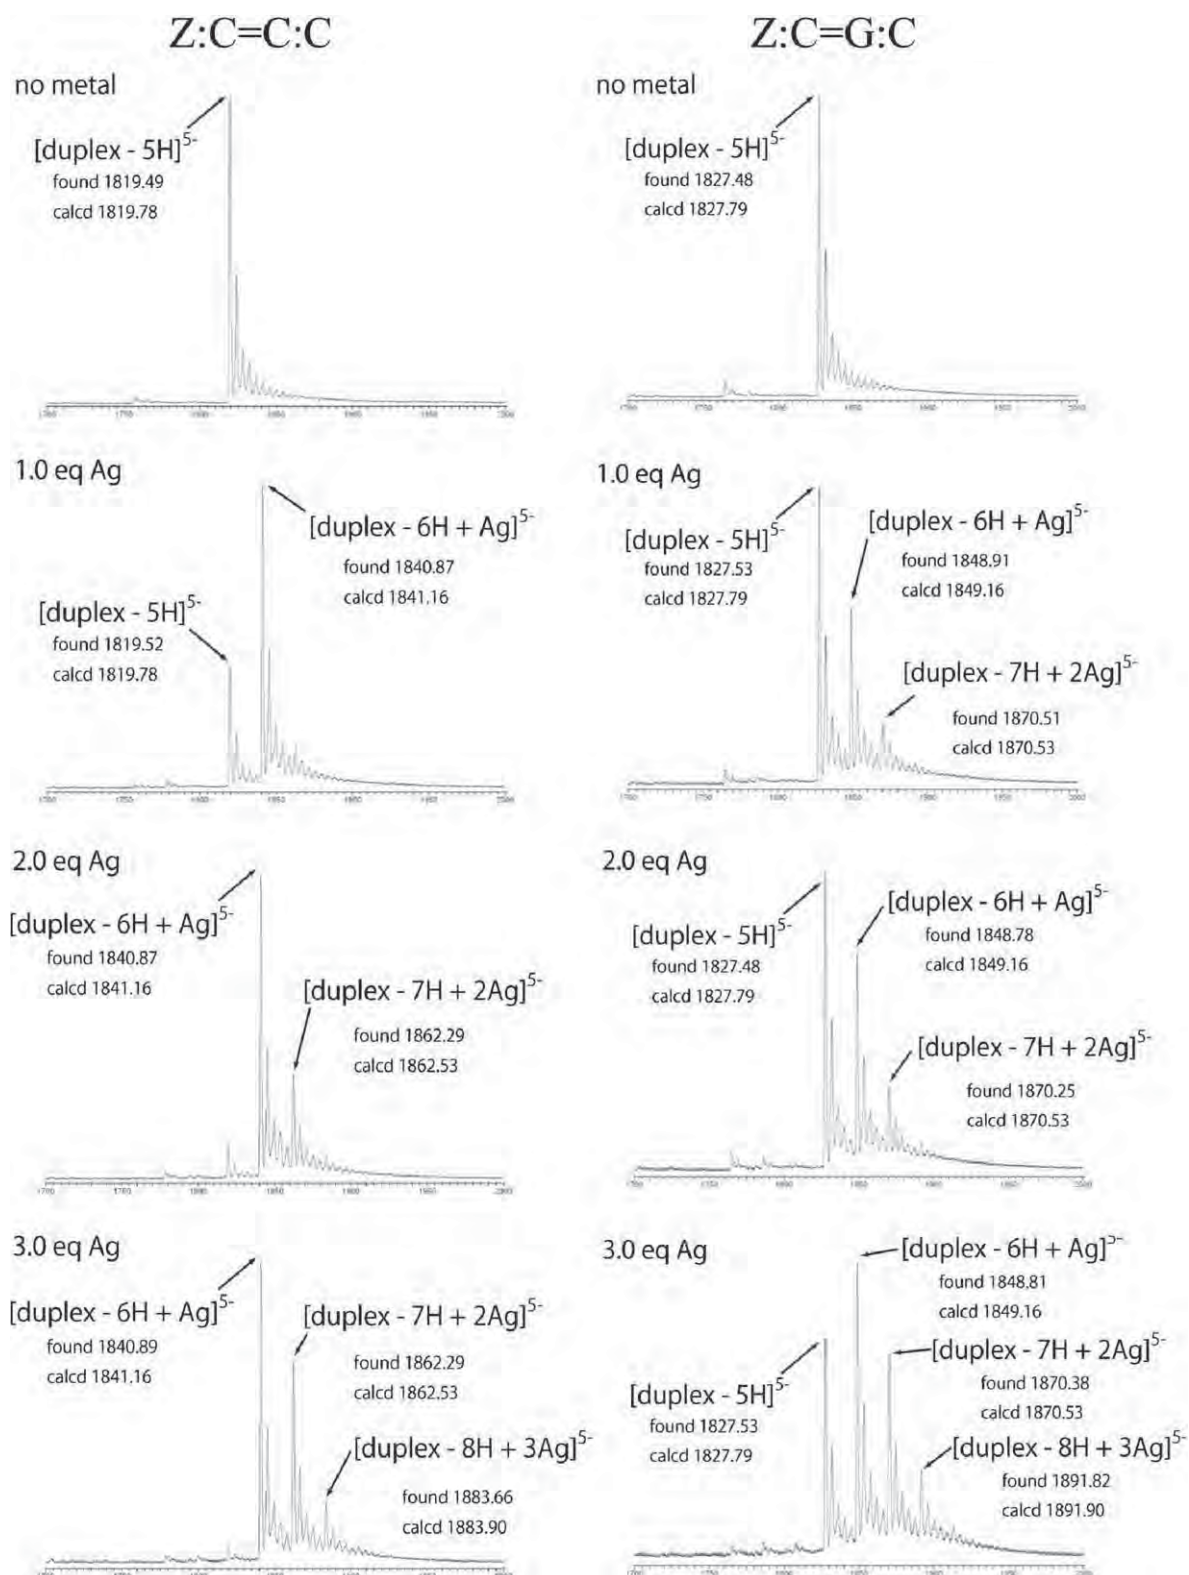 Z:C=C:C
no metal
[duplex - 5H]5-
found 1819.49
calcd 1819.78
1.0 eq Ag
[duplex - 6H + Ag]5-
found 1840.87
calcd 1841.16
[duplex - 5H]5-
found 1819.52
calcd 1819.78
2.0 eq Ag
[duplex - 6H + Ag]5-
found 1840.87
calcd 1841.16
[duplex - 7H + 2Ag]5-
found 1862.29
calcd 1862.53
3.0 eq Ag
[duplex - 6H + Ag]5-
found 1840.89
calcd 1841.16
[duplex - 7H + 2Ag]5-
found 1862.29
calcd 1862.53
[duplex - 8H + 3Ag]5-
found 1883.66
calcd 1883.90
Z:C=G:C
no metal
[duplex - 5H]5-
found 1827.48
calcd 1827.79
1.0 eq Ag
[duplex - 5H]5-
found 1827.53
calcd 1827.79
[duplex - 6H + Ag]5-
found 1848.91
calcd 1849.16
[duplex - 7H + 2Ag]5-
found 1870.51
calcd 1870.53
2.0 eq Ag
[duplex - 5H]5-
found 1827.48
calcd 1827.79
[duplex - 6H + Ag]5-
found 1848.78
calcd 1849.16
[duplex - 7H + 2Ag]5-
found 1870.25
calcd 1870.53
3.0 eq Ag
[duplex - 6H + Ag]5-
found 1848.81
calcd 1849.16
[duplex - 7H + 2Ag]5-
found 1870.38
calcd 1870.53
[duplex - 5H]5-
found 1827.53
calcd 1827.79
[duplex - 8H + 3Ag]5-
found 1891.82
calcd 1891.90